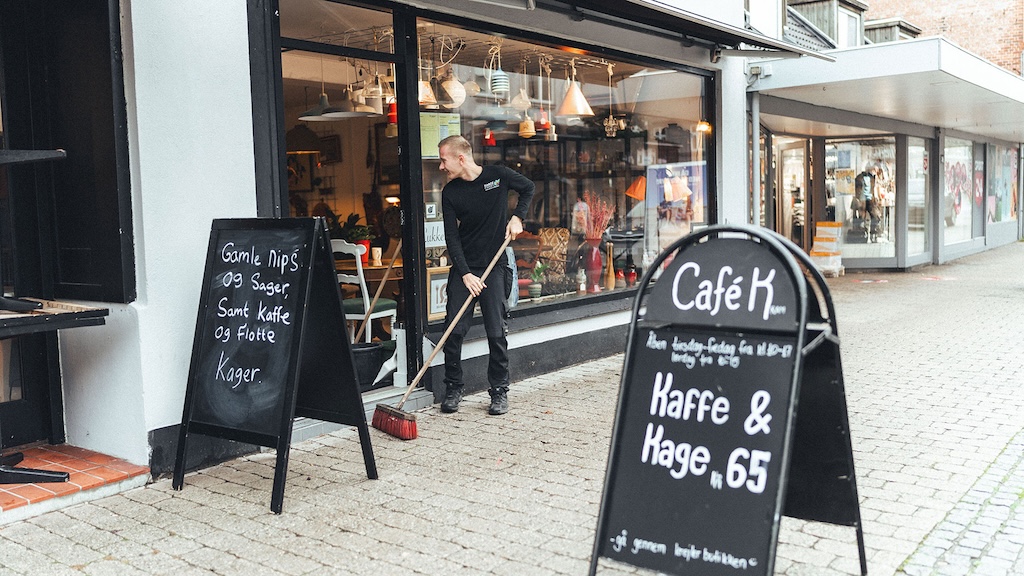 Gamle Nips
og Sager,
Samt Kaffe
og Flotte
Kager.
Café K
Åben tirsdag-fredag fra kl. 10-17
lørdag fra 10-15
Kaffe &
Kage 65
-gå gennem butikken